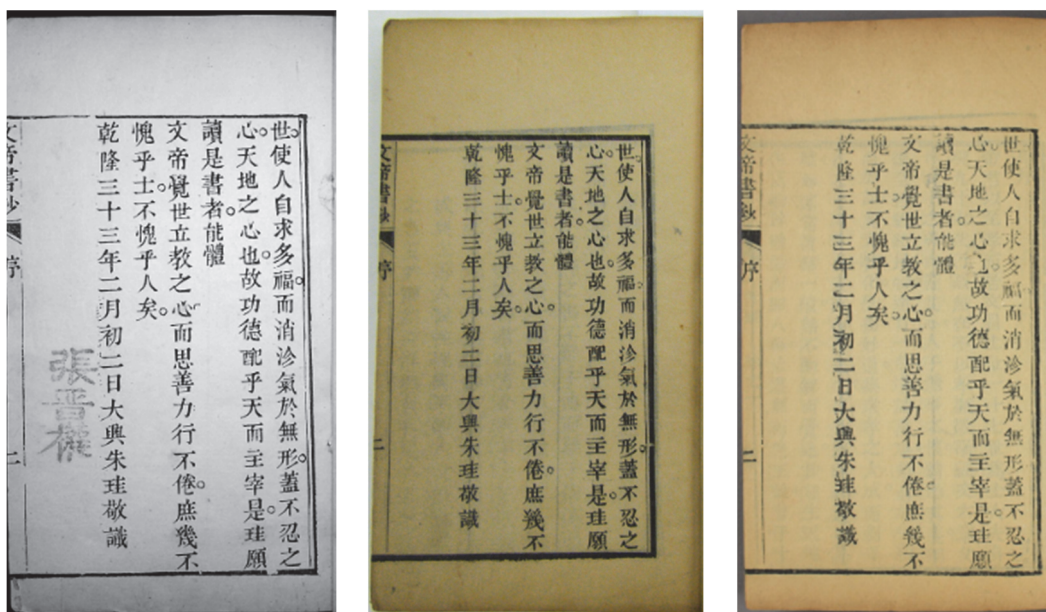 世使人自求多福而消沴氣於無形蓋不忍之
心天地之心也故功德配乎天而主宰是珪願
讀是書者能體
文帝覺世立教之心而思善力行不倦庶幾不
愧乎士不愧乎人矣
乾隆三十三年二月初二日大興朱珪敬識
張晋
文帝書鈔 序 二
世使人自求多福而消沴氣於無形蓋不忍之
心天地之心也故功德配乎天而主宰是珪願
讀是書者能體
文帝覺世立教之心而思善力行不倦庶幾不
愧乎士不愧乎人矣
乾隆三十三年二月初二日大興朱珪敬識
文帝書鈔 序 二
世使人自求多福而消沴氣於無形蓋不忍之
心天地之心也故功德配乎天而主宰是珪願
讀是書者能體
文帝覺世立教之心而思善力行不倦庶幾不
愧乎士不愧乎人矣
乾隆三十三年二月初二日大興朱珪敬識
文帝書鈔 序 二